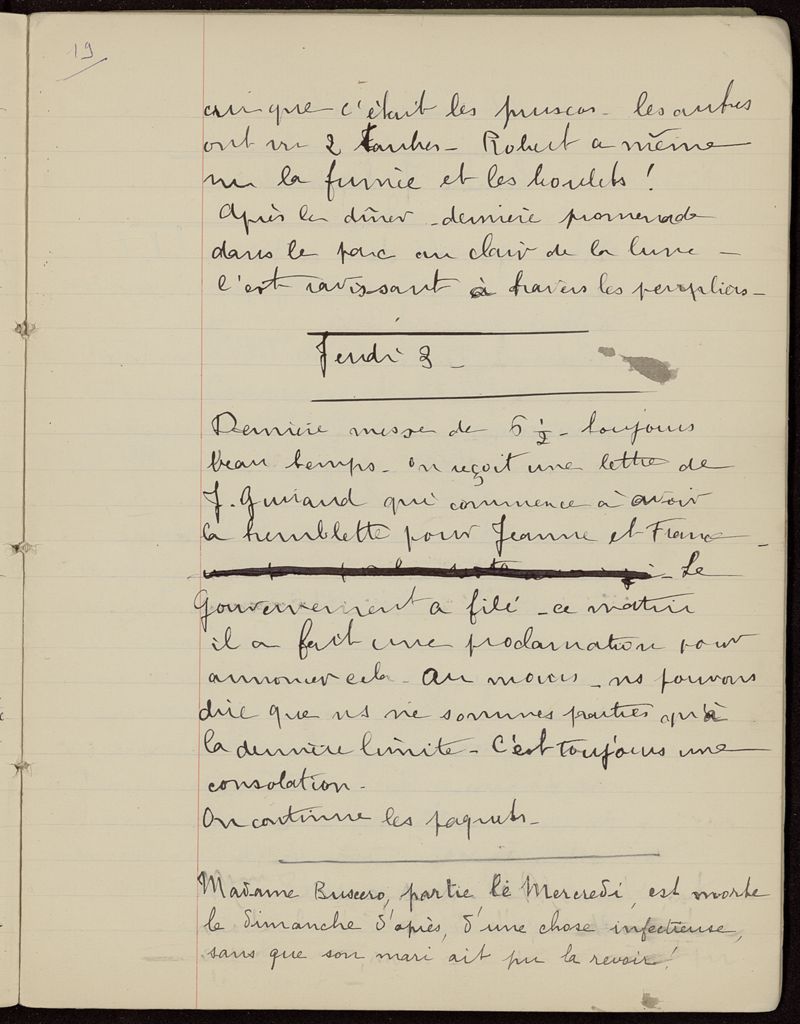 19
cru que c'était les pruscos - les autres
ont vu 2 Taubes - Robert a même
vu la fumée et les boulets !
Après le dîner - dernière promenade
dans le parc au clair de la lune -
c'est ravissant à travers les peupliers -
Jeudi 3 -
Dernière messe de 6 ½ - toujours
beau temps - on reçoit une lettre de
J. Guiraud qui commence à avoir
la tremblette pour Jeanne et Franc -
- Le
Gouvernement a filé - ce matin
il a fait une proclamation pour
annoncer cela - Au moins - ns pouvons
dire que ns ne sommes parties qu'à
la dernière limite - C'est toujours une
consolation -
On continue les paquets -
Madame Buscero, partie le Mercredi, est morte
le dimanche d'après, d'une chose infectieuse,
sans que son mari ait pu la revoir !